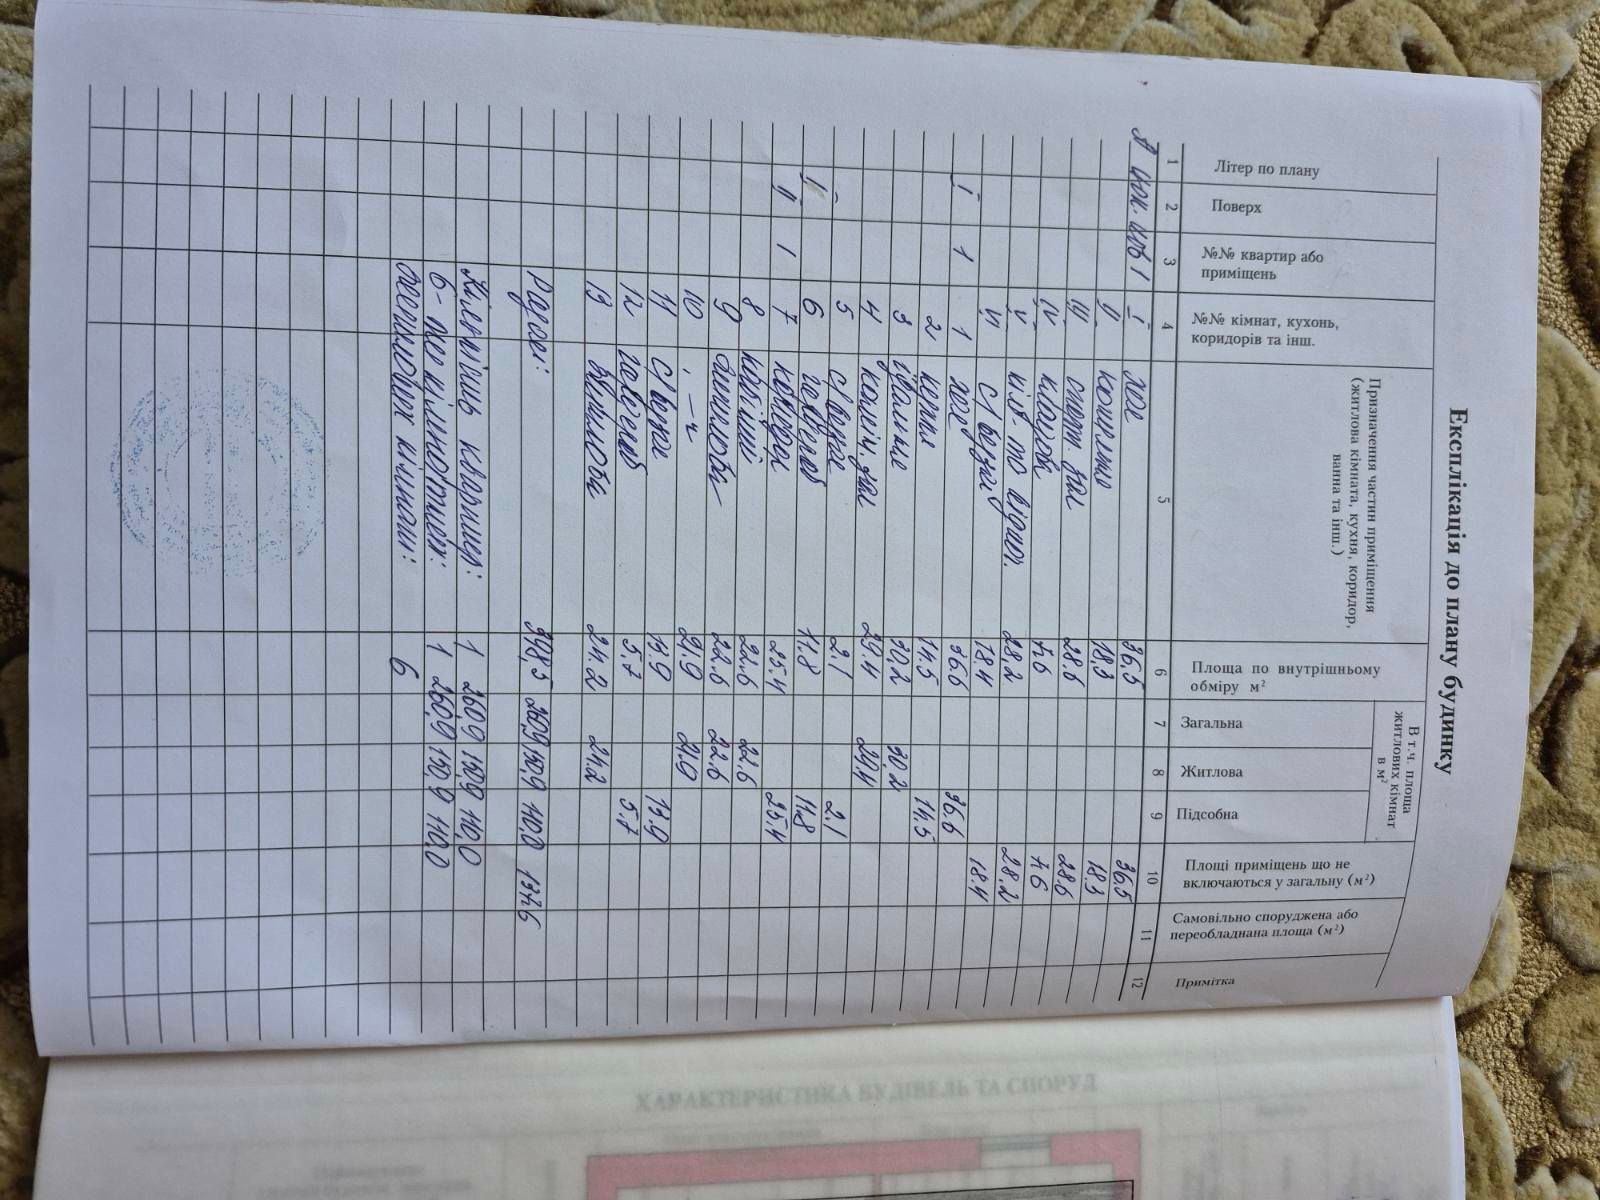 Експлікація до плану будинку
Літер по плану
Поверх
№№ квартир або приміщень
№№ кімнат, кухонь, коридорів та інш.
Призначення частин приміщення (житлова кімната, кухня, коридор, ванна та інш.)
Площа по внутрішньому обміру м²
В т.ч. площа житлових кімнат в м²
Загальна
Житлова
Підсобна
Площі приміщень що не включаються у загальну (м²)
Самовільно споруджена або переобладнана площа (м²)
Примітка
1 2 3 4 5 6 7 8 9 10 11 12
А цок. 1 I хол 36.5 36.5
II 18.3 18.3
III спорт. зал 28.6 28.6
IV кладова 7.6 7.6
V 28,2 28.2
VI с/вузол 18.4 18.4
I 1 1 хол 36.6 36.6
2 кухня 14.5 14.5
3 їдальня 30,2 30.2
4 камін. зал 29.4 29.4
5 с/вузол 2.1 2.1
II 6 11.8 11.8
II 1 7 коридор 25.4 25.4
8 кабінет 22.6 22.6
9 дитяча 22.6 22.6
10 -"- 21,9 21.9
11 с/вузол 13.9 13.9
12 5.7 5.7
13 24.2 24.2
Разом: 398,5 260,9 150,9 110.0 137.6
Кількість квартир: 1 260,9 150,9 110,0
6-ти кімнатних: 1 260,9 150,9 110,0
житлових кімнат: 6
ХАРАКТЕРИСТИКА БУДІВЕЛЬ ТА СПОРУД